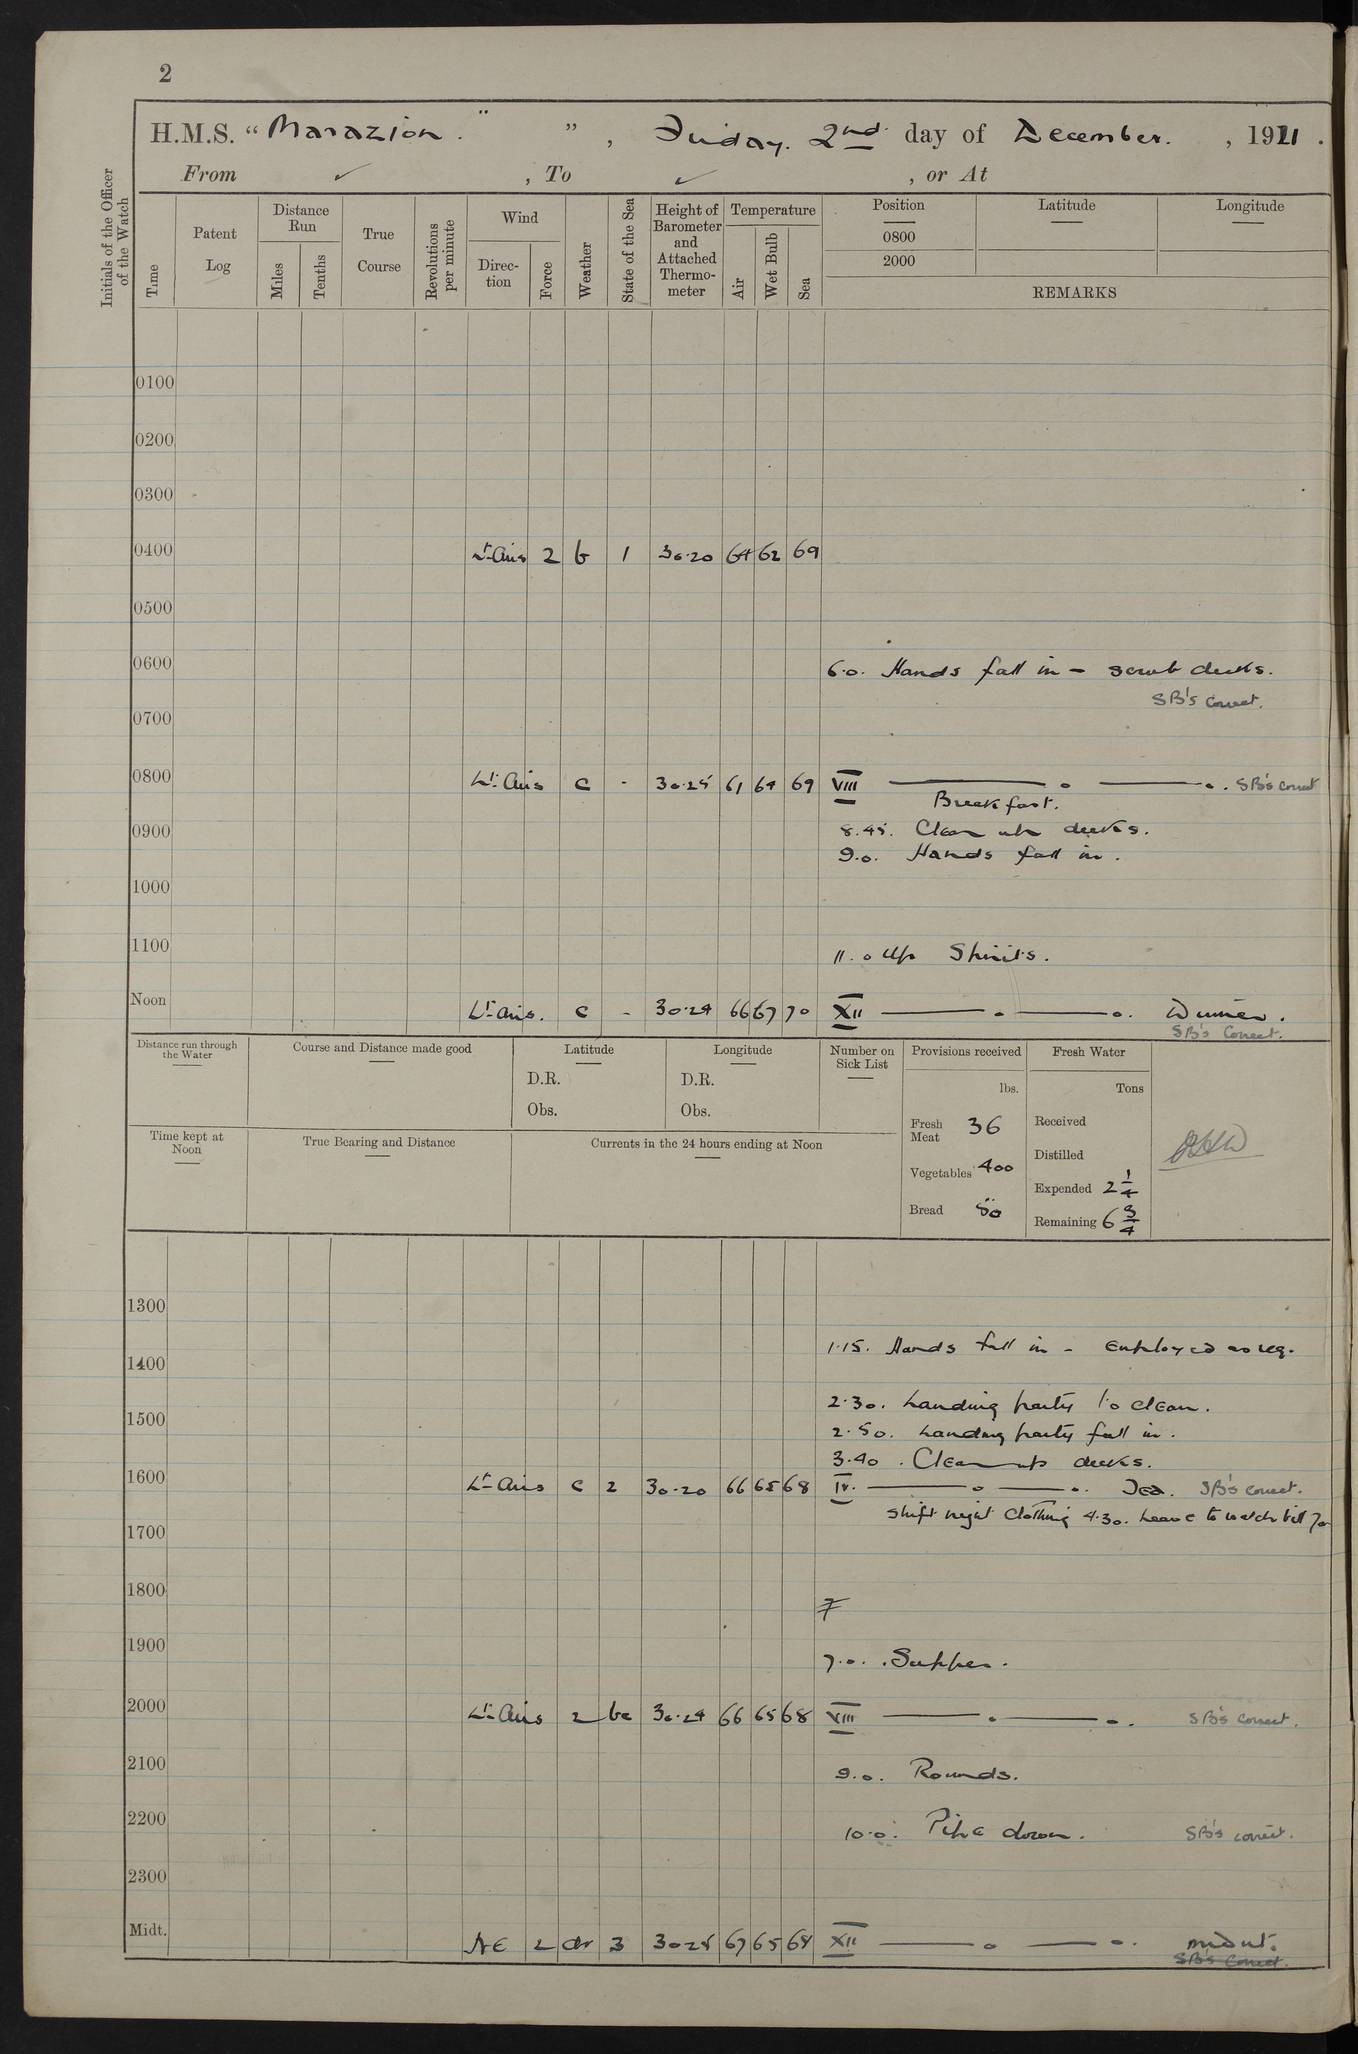 2
H.M.S. “ Marazion. ” , Friday. 2nd. day of December. , 1921 .
From ✓ , To ✓ , or At
Initials of the Officer of the Watch
Time
Patent Log
Distance Run
Miles
Tenths
True Course
Revolutions per minute
Wind
Direc-tion
Force
Weather
State of the Sea
Height of Barometer and Attached Thermo-meter
Temperature
Air
Wet Bulb
Sea
Position
0800
2000
Latitude
Longitude
REMARKS
0100
0200
0300
0400 Lt Airs 2 b 1 30.20 64 62 69
0500
0600
6.0. Hands fall in – scrub decks.
SB's correct.
0700
0800 Lt. Airs c - 30.25 61 64 69 VIII SB's correct
Breakfast.
0900 8.45. Clean up decks.
9.0. Hands fall in.
1000
1100 11.0 Up Spirits.
Noon Lt. Airs. c - 30.24 66 67 70 XII Dinner.
SB's correct.
Distance run through the Water
Course and Distance made good
Latitude
D.R.
Obs.
Longitude
D.R.
Obs.
Number on Sick List
Provisions received
lbs.
Fresh Meat 36
Vegetables 400
Bread 50
Fresh Water
Tons
Received
Distilled
Expended 2 1/4
Remaining 6 3/4
Time kept at Noon
True Bearing and Distance
Currents in the 24 hours ending at Noon
1300
1.15. Hands fall in – employed as req.
1400
2.30. Landing party to clean.
1500 2.50. Landing party fall in.
3.40. Clean up decks.
1600 Lt Airs c 2 30.20 66 65 68 IV. Tea. SB's correct.
Shift night clothing 4.30. Leave to watch till 7
1700
1800
1900
7.0. Supper.
2000 Lt. Airs 2 bc 30.24 66 65 68 VIII SB's correct.
2100 9.0. Rounds.
2200 10.0. Pipe down. SB's correct.
2300
Midt. NE 2 3 30.25 67 65 68 XII midnt.
SB's correct.